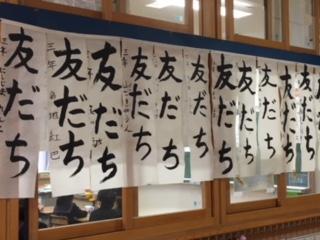 友だち
友だち
三年
友だち
友だち
三年
友だち
友だち
友だち
友だち
友だち
友だち
友だち